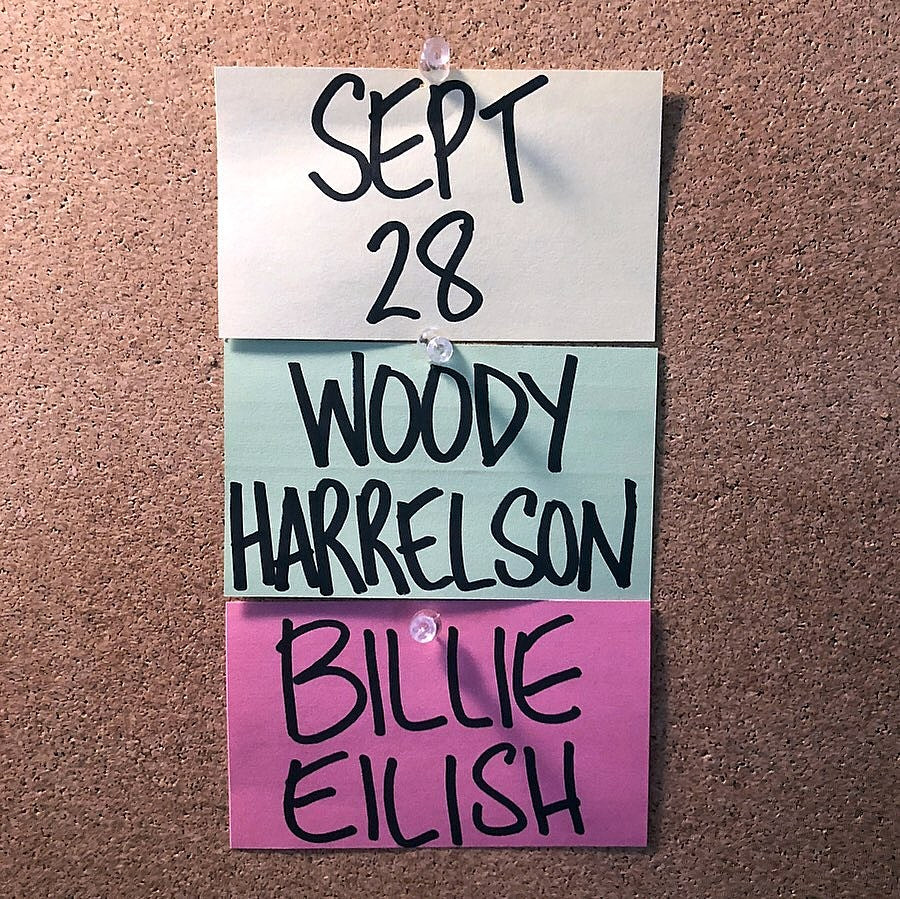 SEPT
28
WOODY
HARRELSON
BILLIE
EILISH